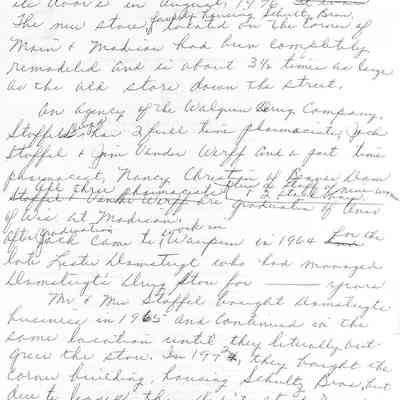 its doors in August, 1976.
formerly housing Schultz Bros.
The new store, located on the corner of
Main & Madison had been completely
remodeled and is about 3½ times as large
as the old store down the street.
An agency of the Walgreen Drug Company,
Stoffel's has 2 full time pharmacists, Jack
Stoffel & Jim Vander Werff and a part time
pharmacist, Nancy Christian of Beaver Dam
All three pharmacists
Stoffel & Vander Werff are graduates of
U of Wis at Madison.
After graduation Jack came to work in Waupun in 1964 for the
late Lester Damsteegt who had managed
Damsteegt's Drug Store for ——— years
Mr & Mrs Stoffel bought Damsteegts
business in 1965 and continued in the
same location until they literally out-
grew the store. In 1974, they bought the
corner building, housing Schultz Bros, but
due to leases they